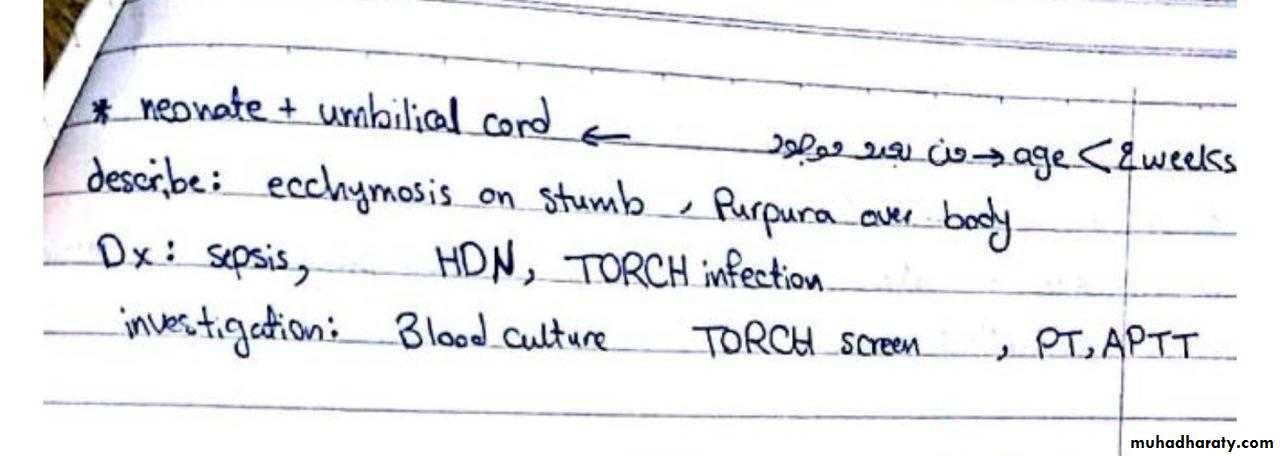 * neonate + umbilical cord ← age < 2 weeks
describe: ecchymosis on stumb , Purpura over body
Dx: sepsis, HDN, TORCH infection
investigation: Blood culture TORCH screen , PT, APTT
muhadharaty.com